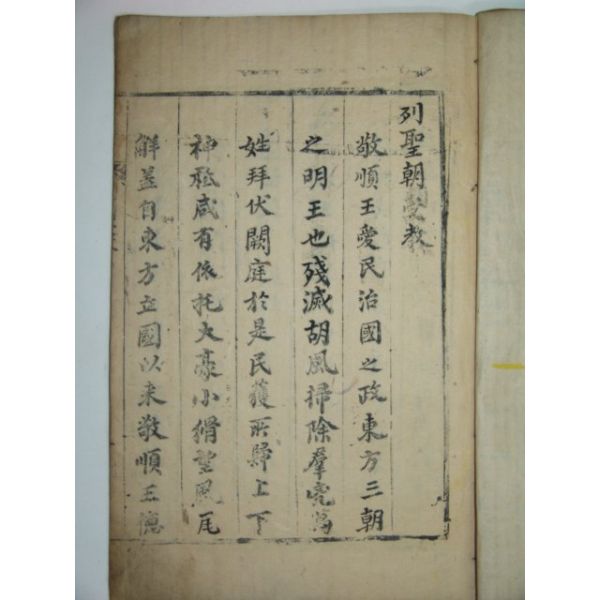 列聖朝受教
敬順王愛民治國之政東方三朝
之明王也殘滅胡風掃除羣兇萬
姓拜伏闕庭於是民獲所歸上下
神祗咸有依托大豪小猾望風瓦
解盖自東方立國以来敬順王德